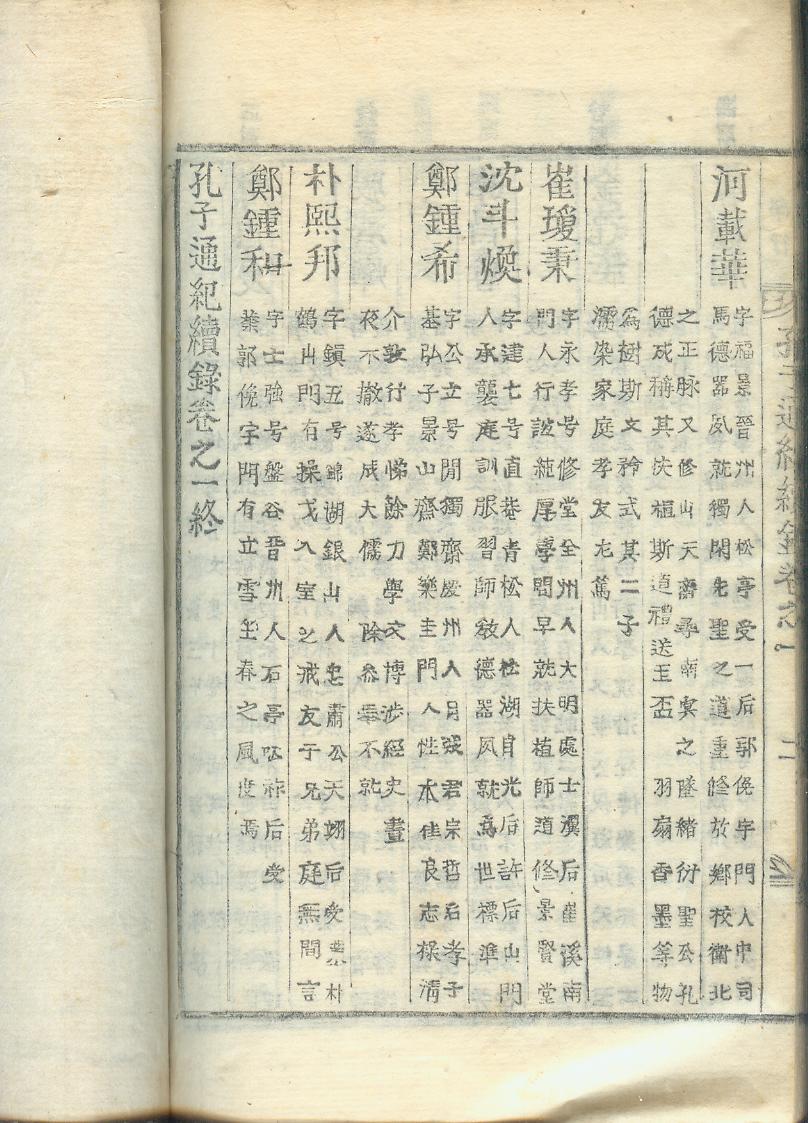 孔子通紀續錄卷之一
二
河載華
字福景晉州人松亭受一后郭俛宇門人中司
馬德器夙就獨閑先聖之道重修於鄕校衛北
之正脉又修山天齋尋南冥之墜緖衍聖公孔
德成稱其扶植斯道禮送玉盃羽扇香墨等物
爲樹斯文矜式其二子
濡染家庭孝友尤篤
崔瓊秉
字永孝号修堂全州人大明處士瀷后崔溪南
門人行誼純厚學問早就扶植師道修景賢堂
沈斗煥
字建七号直菴靑松人松湖自光后許后山門
人承襲庭訓服習師敎德器夙就爲世標準
鄭鍾希
字公立号閒獨齋慶州人月城君宗哲后孝子
基弘子景山齋鄭樂圭門人性本佳良志操淸
介敦行孝悌餘力學文博涉經史晝
夜不撤遂成大儒除參奉不就
朴熙邦
字鎭五号錦湖銀山人忠肅公天翊后受業朴
鶴山門有操戈入室之戒友于兄弟庭無間言
鄭鍾和
字士強号盤谷晉州人石亭 祚后受
業郭俛宇門有立雪坐春之風度焉
孔子通紀續錄卷之一終